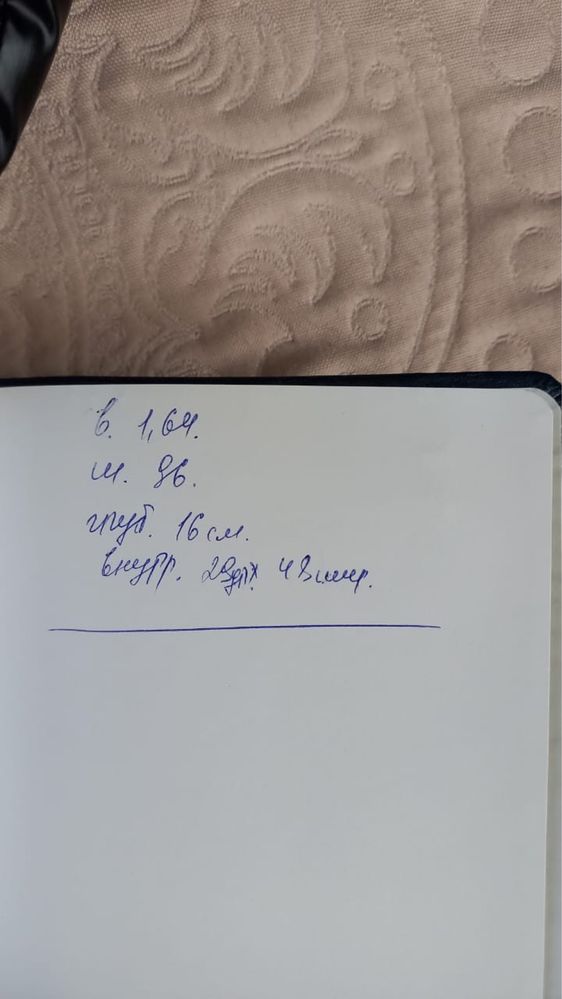 в. 1,64.
ш. 96.
глуб. 16 см.
внутр. 28 х 43 шир.